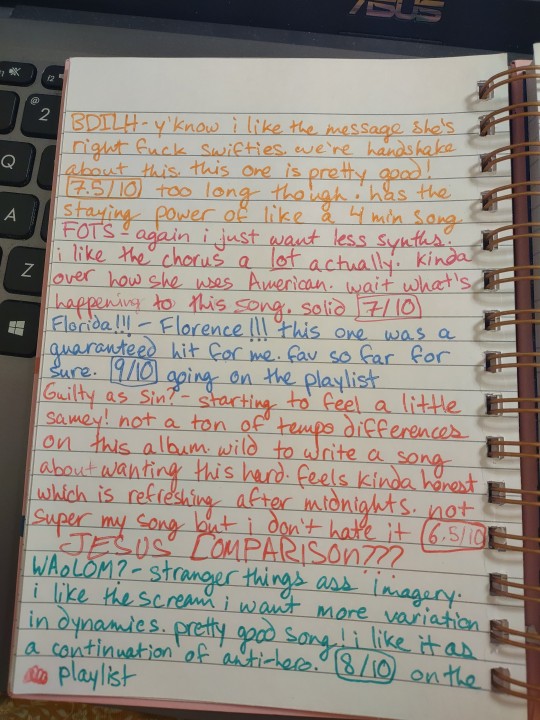 ASUS
f2
@
2
Q
A
Z
BDILH - y'know i like the message she's
right fuck swifties. we're handshake
about this. this one is pretty good!
7.5/10 too long though. has the
staying power of like a 4 min song.
FOTS - again i just want less synths.
i like the chorus a lot actually. kinda
over how she uses American. wait what's
happening to this song. solid 7/10
Florida!!! - Florence!!! this one was a
guaranteed hit for me. fav so far for
sure. 9/10 going on the playlist
Guilty as Sin? - starting to feel a little
samey! not a ton of tempo differences
on this album. wild to write a song
about wanting this hard. feels kinda honest
which is refreshing after midnights. not
super my song but i don't hate it 6.5/10
JESUS COMPARISON???
WAoLOM? - stranger things ass imagery.
i like the scream i want more variation
in dynamics. pretty good song! i like it as
a continuation of anti-hero. 8/10 on the
playlist